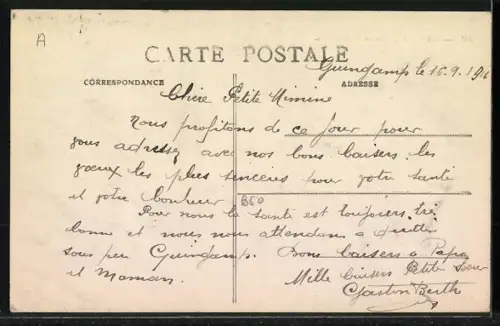 A
CARTE POSTALE
Guingamp le 15.9.19
CORRESPONDANCE
ADRESSE
Chère Petite Mimine
Nous profitons de ce jour pour
vous adresser avec nos bons baisers les
vœux les plus sincères pour votre santé
et votre bonheur
B60
Pour nous la santé est toujours très
bonne et nous nous attendons à quitter
sous peu Guingamp. Bons baisers à Papa
et Maman.
Mille baisers Petite Sœur
Gaston Berthe